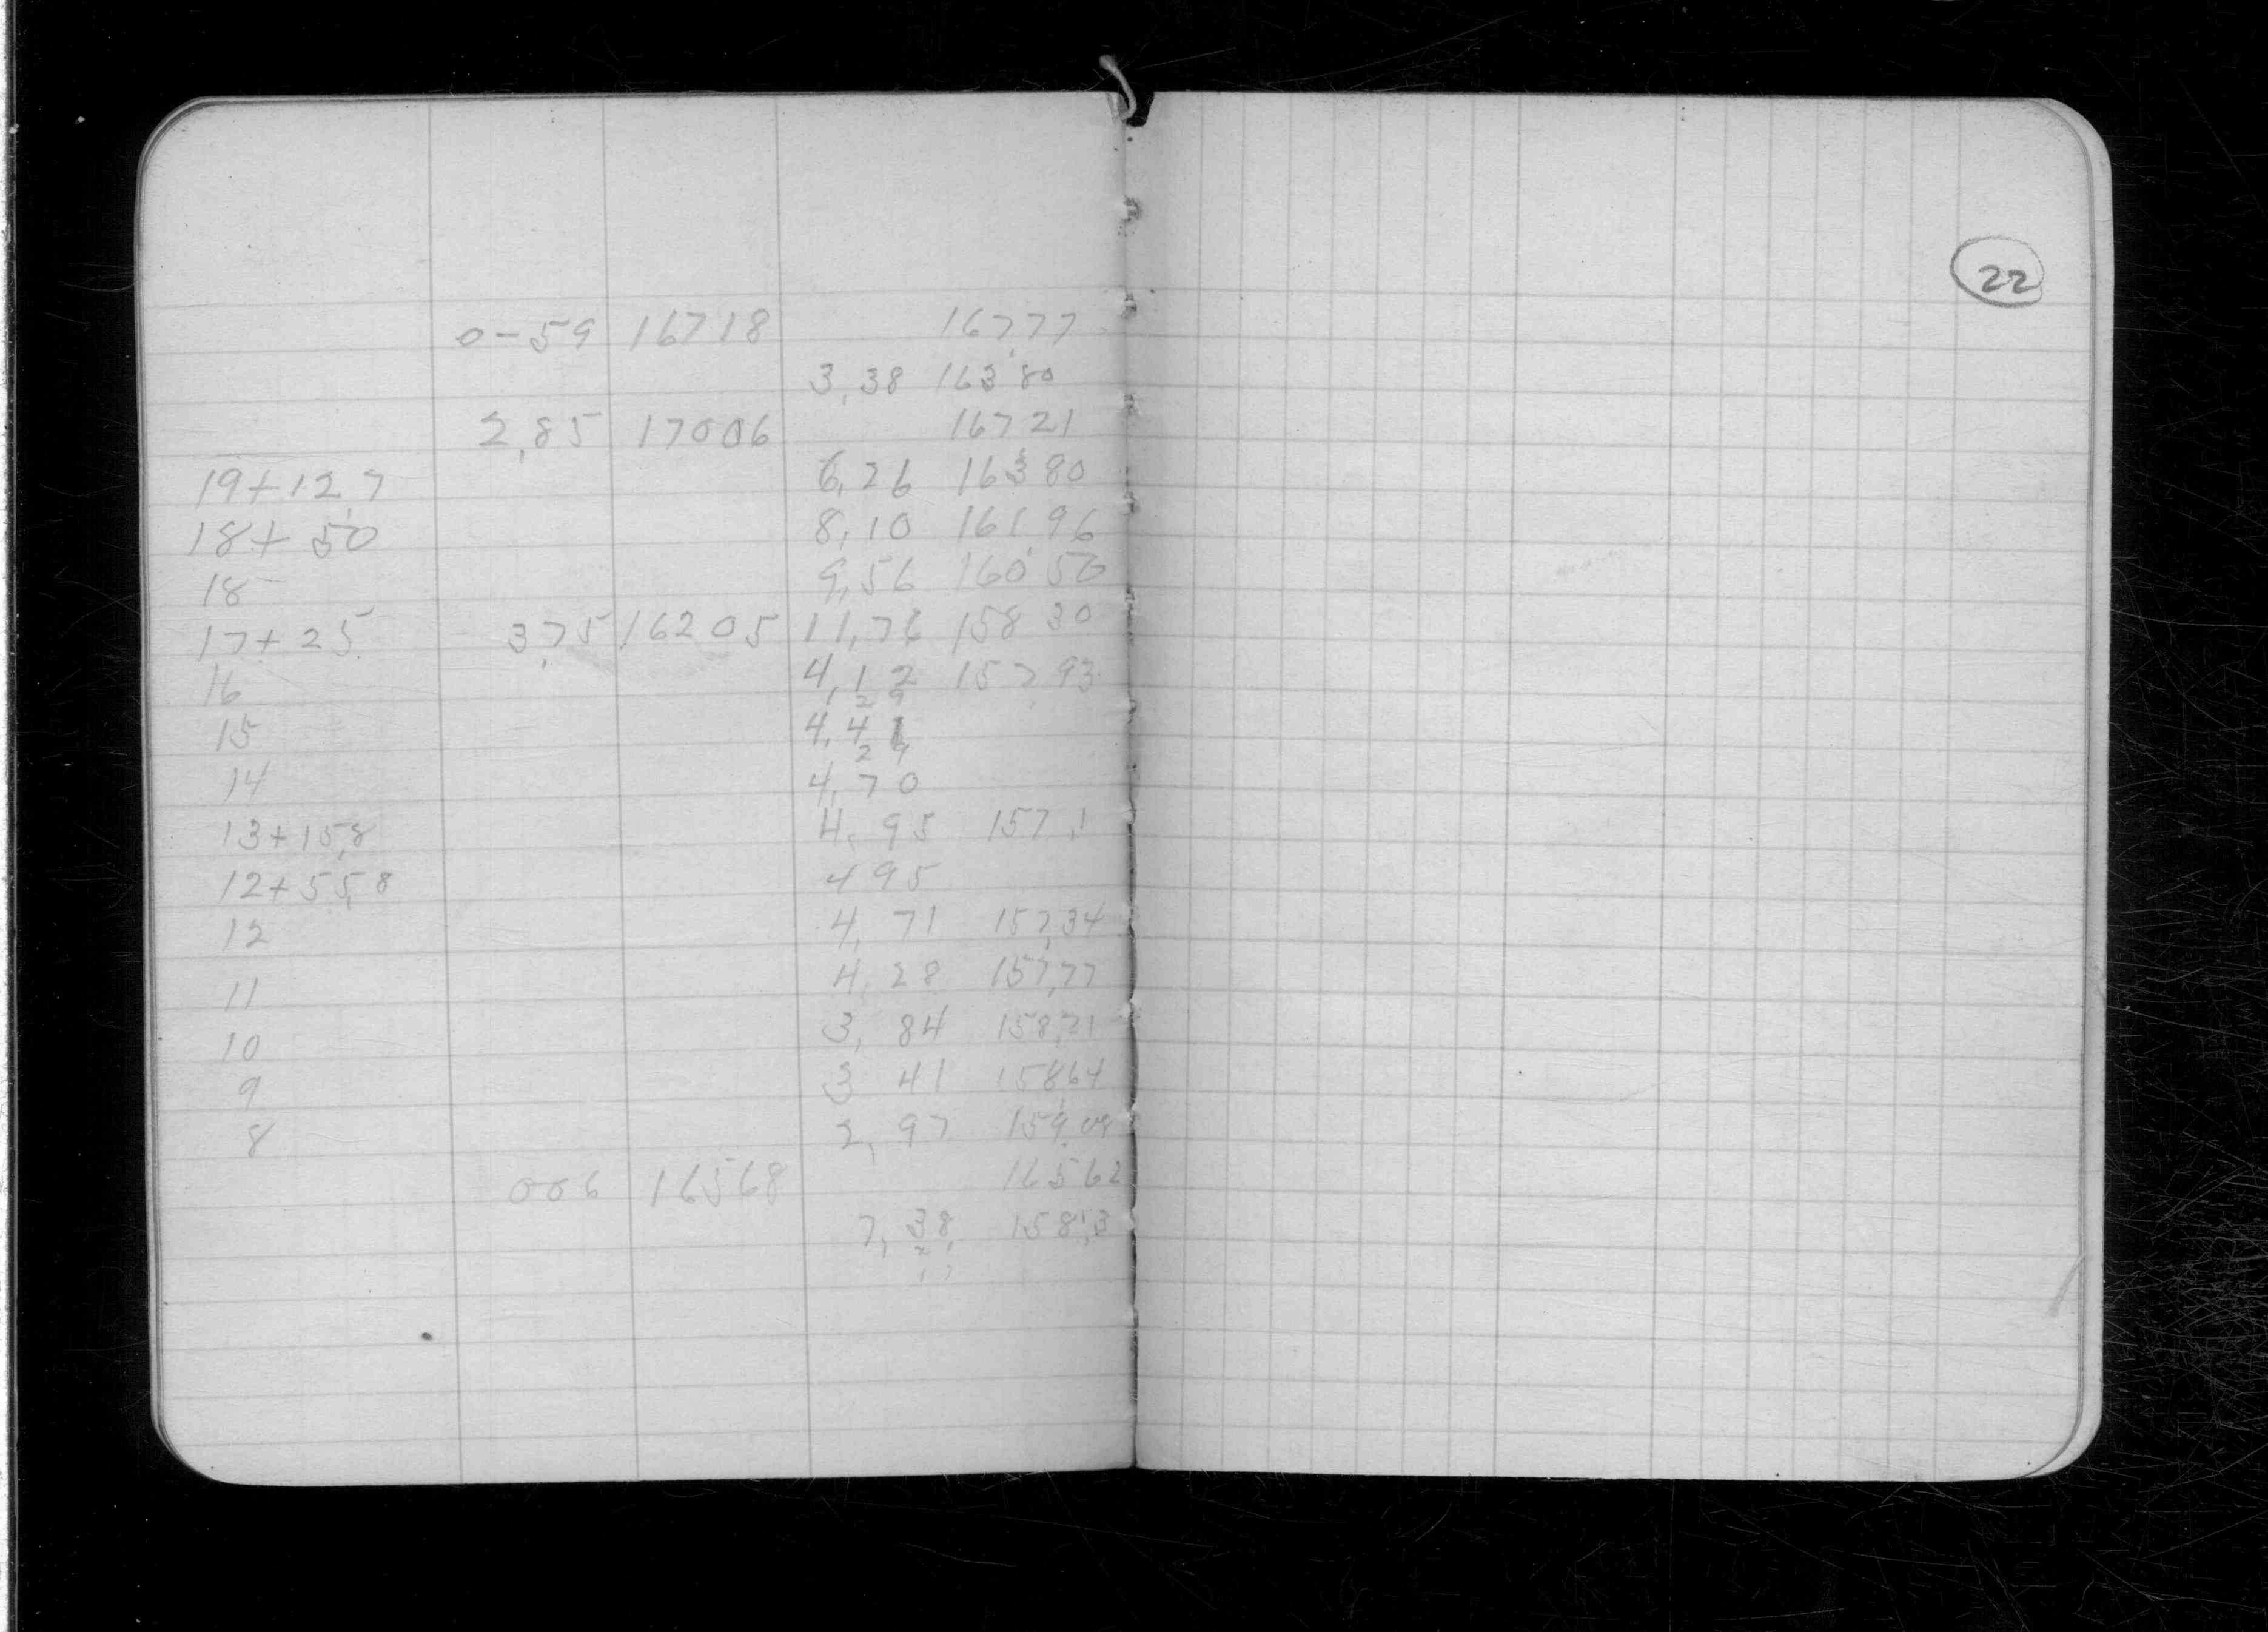 0-59 16718 167,77
3,38 163,80
2,85 17006 16721
19+12,7 6,26 163,80
18+50 8,10 161,96
18 9,56 160,50
17+25 3,75 16205 11,76 158 30
16 4,12 157,93
29
15 4,41
29
14 4,70
13+15,8 4,95 157,1
12+55,8 4 95
12 4,71 157,34
11 4,28 157,77
10 3,84 158,21
9 3 41 158,64
8 2,97 159,08
006 16568 16562
7,38, 158,3
22